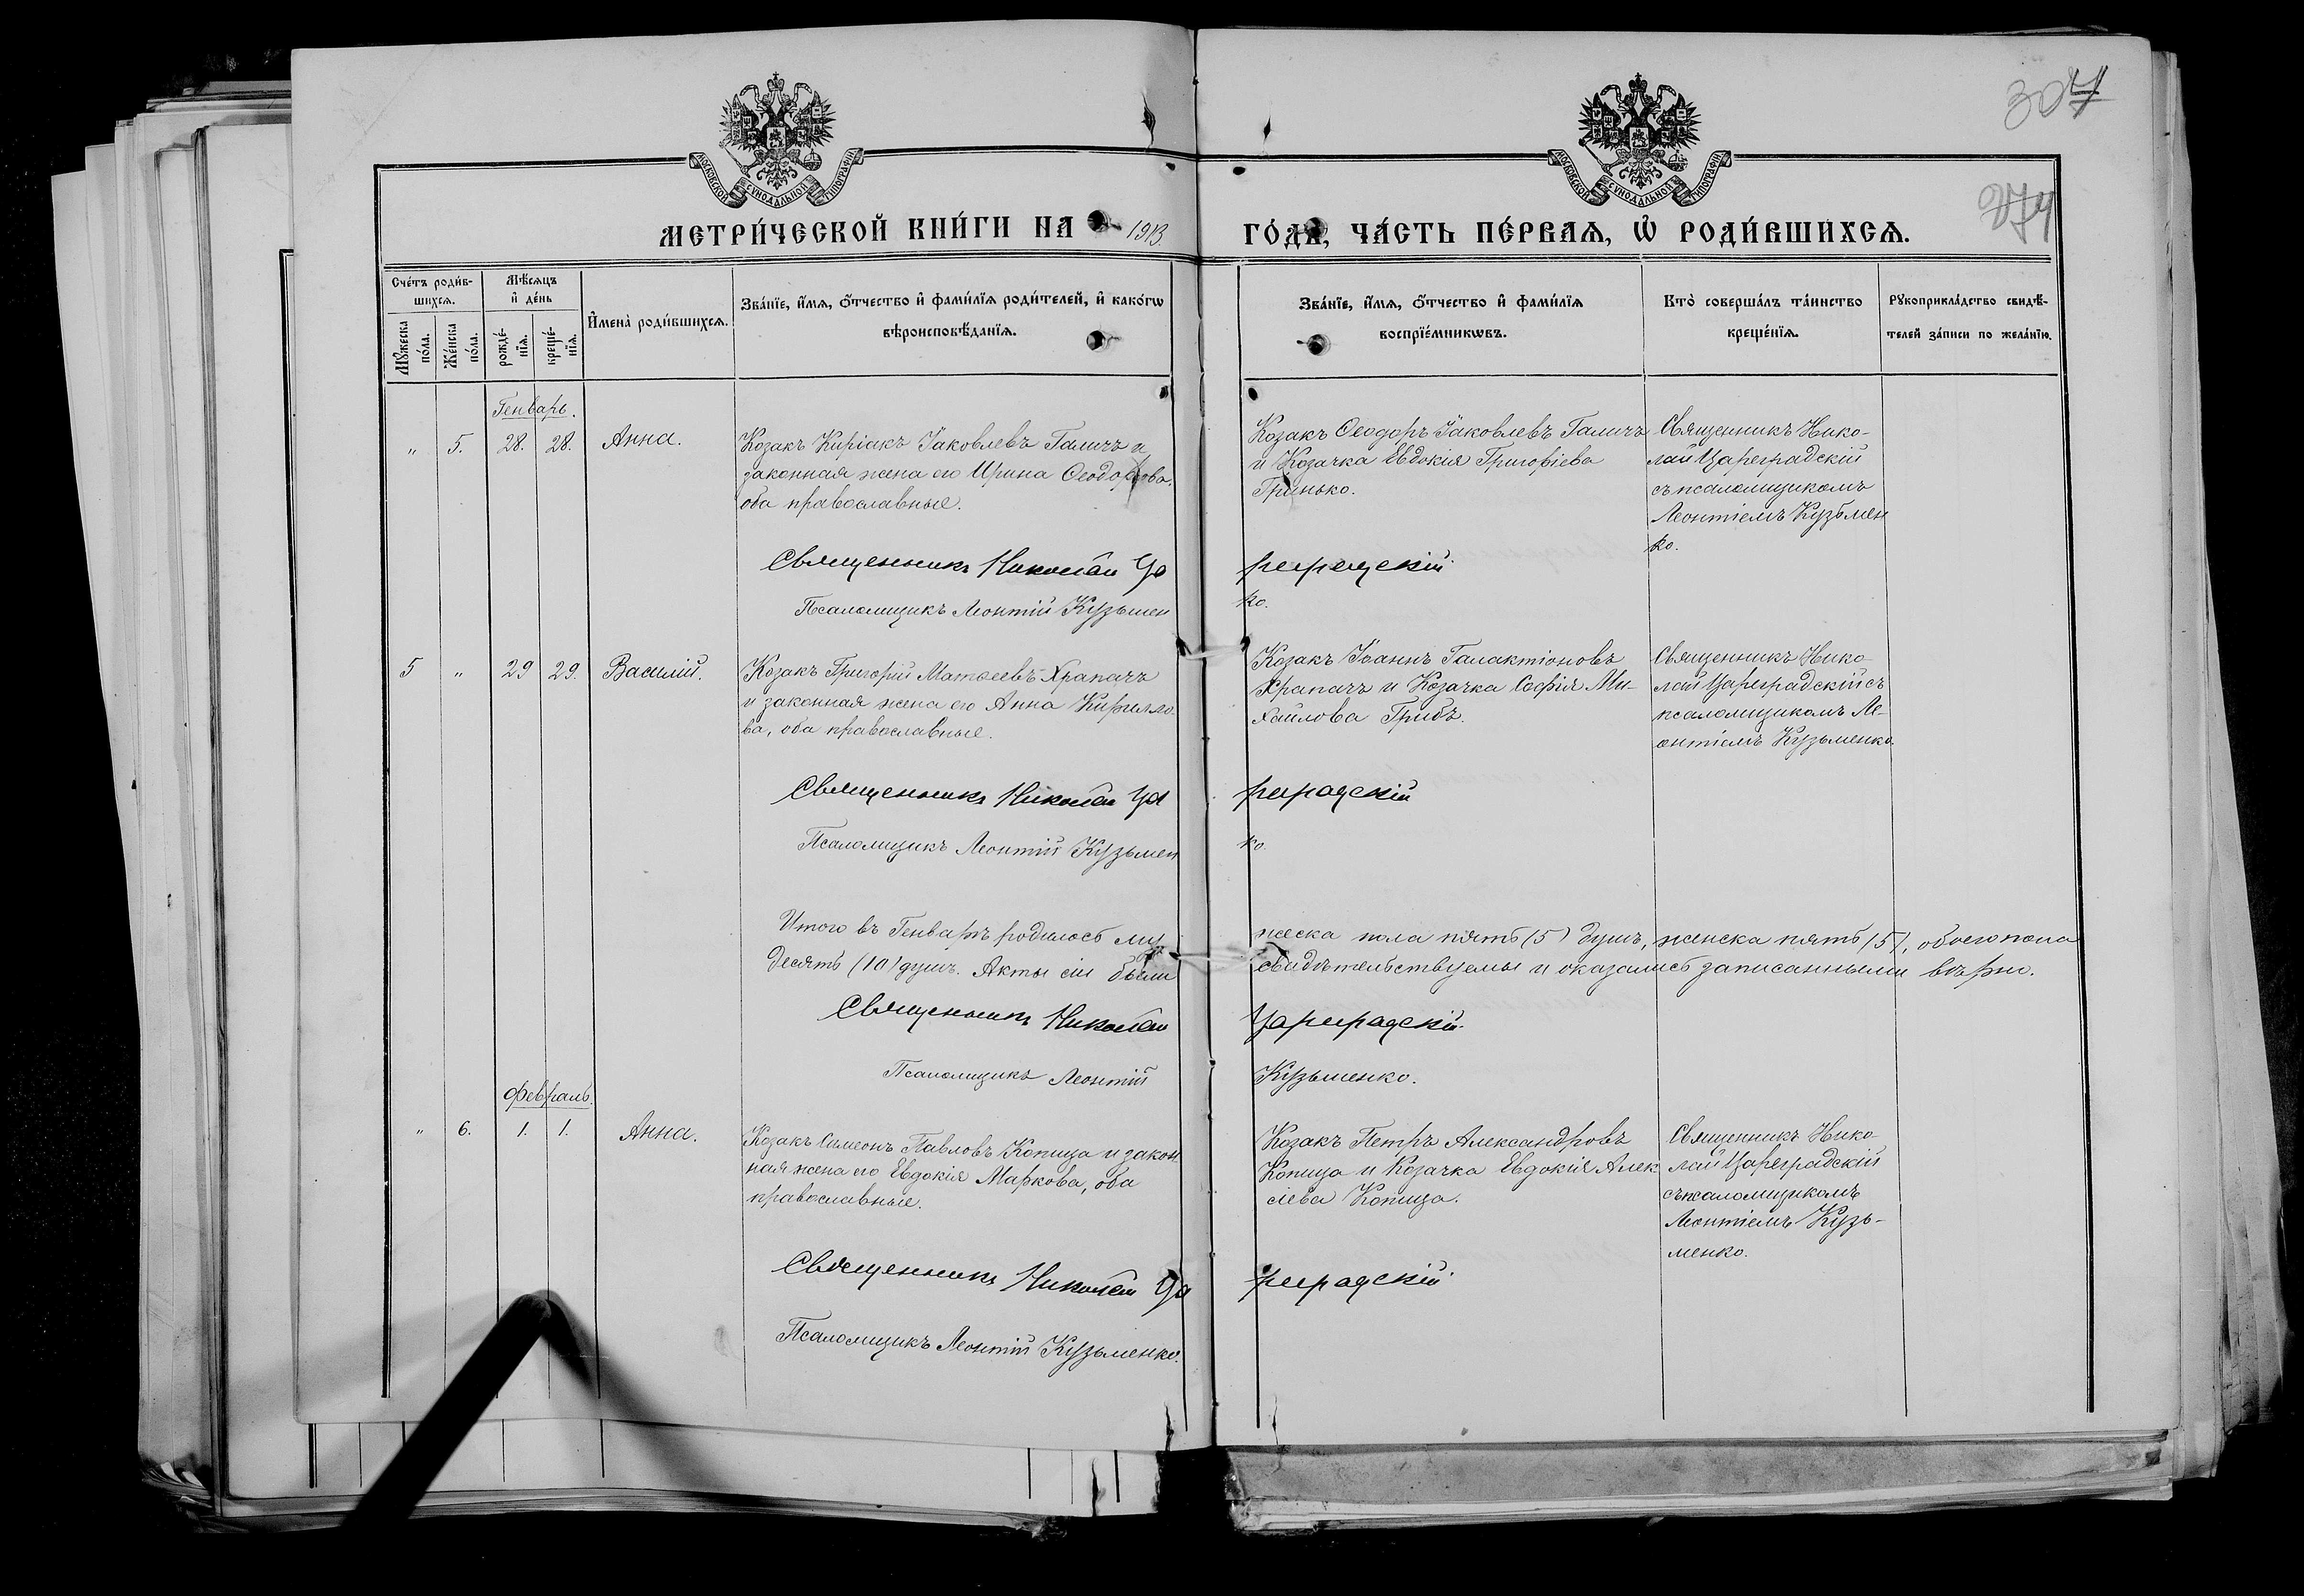 307
274
МОСКОВСКОЙ СУНОДАЛЬНОЙ ТИПОГРАФІИ
МОСКОВСКОЙ СУНОДАЛЬНОЙ ТИПОГРАФІИ
МЕТРИ́ЧЕСКОЙ КНИ́ГИ НА 1913 ГО́ДЪ, ЧА́СТЬ ПЕ́РВАЯ, Ѡ РОДИ́ВШИХСЯ.
Сче́тъ роди́в-
шихся.
Мѣ́сяцъ
и҆ де́нь
Мꙋ́жеска
по́ла.
Же́нска
по́ла.
рожде́-
нїя.
креще́-
нїя.
И҆мена̀ роди́вшихся.
Зва́нїе, и҆́мя, ѻ҆́тчество и҆ фами́лїя роди́телей, и҆ како́гѡ
вѣроисповѣ́данїя.
Зва́нїе, и҆́мя, ѻ҆́тчество и҆ фами́лїя
воспрїе́мникѡвъ.
Кто̀ соверша́лъ та́инство
креще́нїя.
Рꙋкоприкла́дство свидѣ́-
телей за́писи по жела́нїю.
Генварь.
" 5. 28. 28. Анна.
Козакъ Киріакъ Іаковлевъ Галичъ и
законная жена его Ирина Ѳеодорова,
оба православные.
Козакъ Ѳеодоръ Іаковлевъ Галичъ
и Козачка Евдокія Григоріева
Гринько.
Священникъ Нико-
лай Цареградскій
съ псаломщикомъ
Леонтіемъ Кузьмен
ко.
Священникъ Николай Цареградскій
Псаломщикъ Леонтій Кузьменко.
5 " 29 29. Василій.
Козакъ Григорій Матѳеевъ Храпачъ
и законная жена его Анна Кирилло-
ва, оба православные.
Козакъ Іоаннъ Галактіоновъ
Храпачъ и Козачка Софія Ми-
хайлова Грибъ.
Священникъ Нико
лай Цареградскій съ
псаломщикомъ Ле-
онтіемъ Кузьменко.
Священникъ Николай Цареградскій
Псаломщикъ Леонтій Кузьменко.
Итого въ Генварѣ родилось мужеска пола пять (5) душъ, женска пять (5), обоего пола
десять (10) душъ. Акты сіи были свидѣтельствуемы и оказались записанными вѣрно.
Священникъ Николай Цареградскій
Псаломщикъ Леонтій Кузьменко.
Февраль.
" 6. 1. 1. Анна.
Козакъ Симеонъ Павловъ Копица и закон
ная жена его Евдокія Маркова, оба
православные.
Козакъ Петръ Александровъ
Копица и Козачка Евдокія Алек
сіева Копица.
Священникъ Нико
лай Цареградскій
съ псаломщикомъ
Леонтіемъ Кузь-
менко.
Священникъ Николай Цареградскій
Псаломщикъ Леонтій Кузьменко.